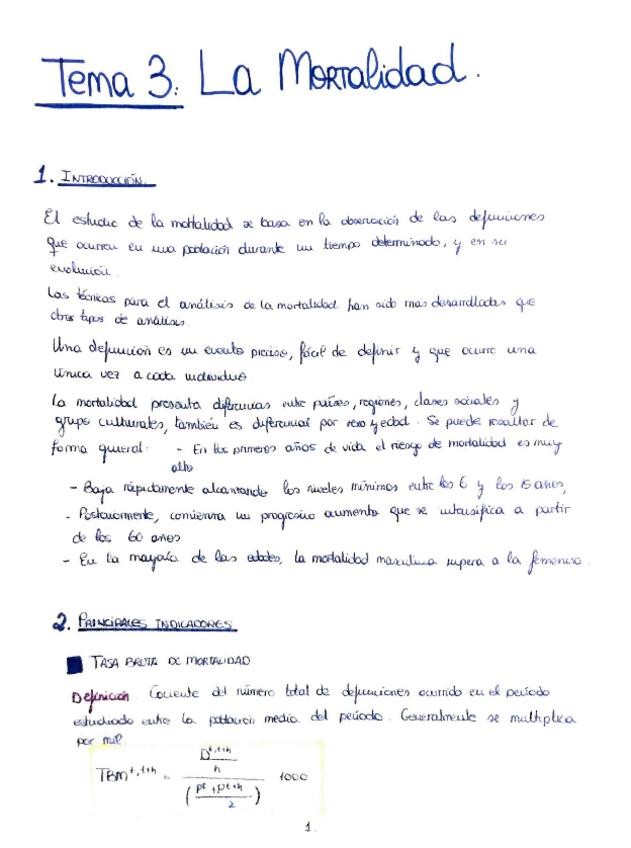 Tema 3: La Mortalidad.
1. INTRODUCCIÓN.
El estudio de la mortalidad se basa en la observación de las defunciones
que ocurren en una población durante un tiempo determinado, y en su
evolución.
Las técnicas para el análisis de la mortalidad han sido más desarrolladas que
otros tipos de análisis.
Una defunción es un evento preciso, fácil de definir y que ocurre una
única vez a cada individuo
La mortalidad presenta diferencias entre países, regiones, clases sociales y
grupos culturales, también es diferencial por sexo y edad. Se puede resaltar de
forma general: - En los primeros años de vida el riesgo de mortalidad es muy
alto.
- Baja rápidamente alcanzando los niveles mínimos entre los 6 y los 15 años,
- Posteriormente, comienza un progresivo aumento que se intensifica a partir
de los 60 años
- En la mayoría de las edades, la mortalidad masculina supera a la femenina.
2. PRINCIPALES INDICADORES
TASA BRUTA DE MORTALIDAD
Definición Cociente del número total de defunciones ocurrido en el periodo
estudiado entre la población media del periodo. Generalmente se multiplica
por mil.
D^t,t+h
TBM^t,t+h = h 1000
(P^t + P^t+h
2)
1.